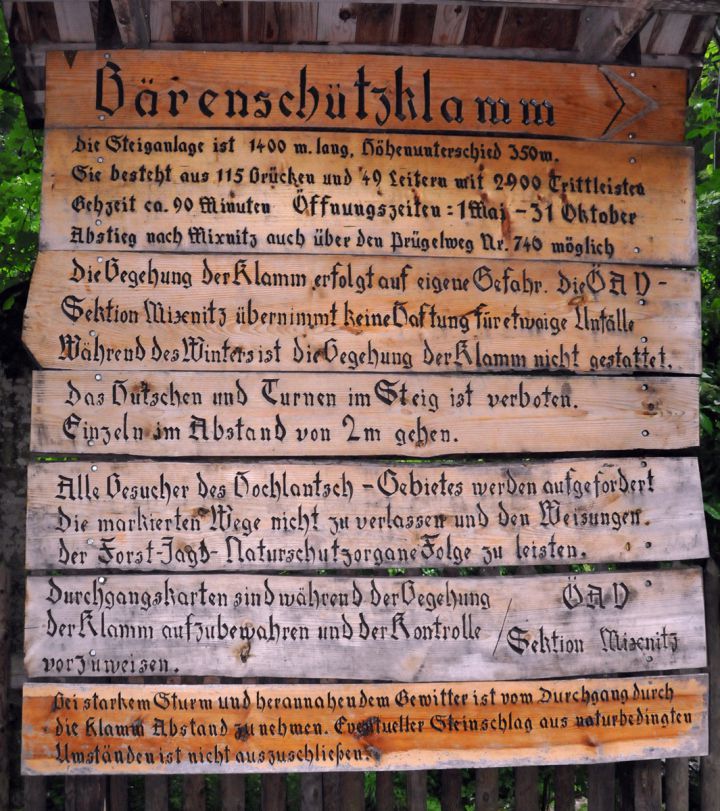 Bärenschützklamm
Die Steiganlage ist 1400 m. lang, Höhenunterschied 350m.
Sie besteht aus 115 Brücken und 49 Leitern mit 2900 Trittleisten
Gehzeit ca. 90 Minuten Öffnungszeiten : 1 Mai - 31 Oktober
Abstieg nach Mixnitz auch über den Prügelweg Nr. 746 möglich
Die Begehung der Klamm erfolgt auf eigene Gefahr. Die ÖAV -
Sektion Mixnitz übernimmt keine Haftung für etwaige Unfälle
Während des Winters ist die Begehung der Klamm nicht gestattet.
Das Hutschen und Turnen im Steig ist verboten.
Einzeln im Abstand von 2m gehen.
Alle Besucher des Hochlantsch - Gebietes werden aufgefordert
Die markierten Wege nicht zu verlassen und den Weisungen.
der Forst-Jagd- Naturschutzorgane Folge zu leisten.
Durchgangskarten sind während der Begehung
der Klamm aufzubewahren und der Kontrolle
vorzuweisen.
/ ÖAV
Sektion Mixnitz
Bei starkem Sturm und herannahendem Gewitter ist vom Durchgang durch
die Klamm Abstand zu nehmen. Eventueller Steinschlag aus naturbedingten
Umständen ist nicht auszuschließen.